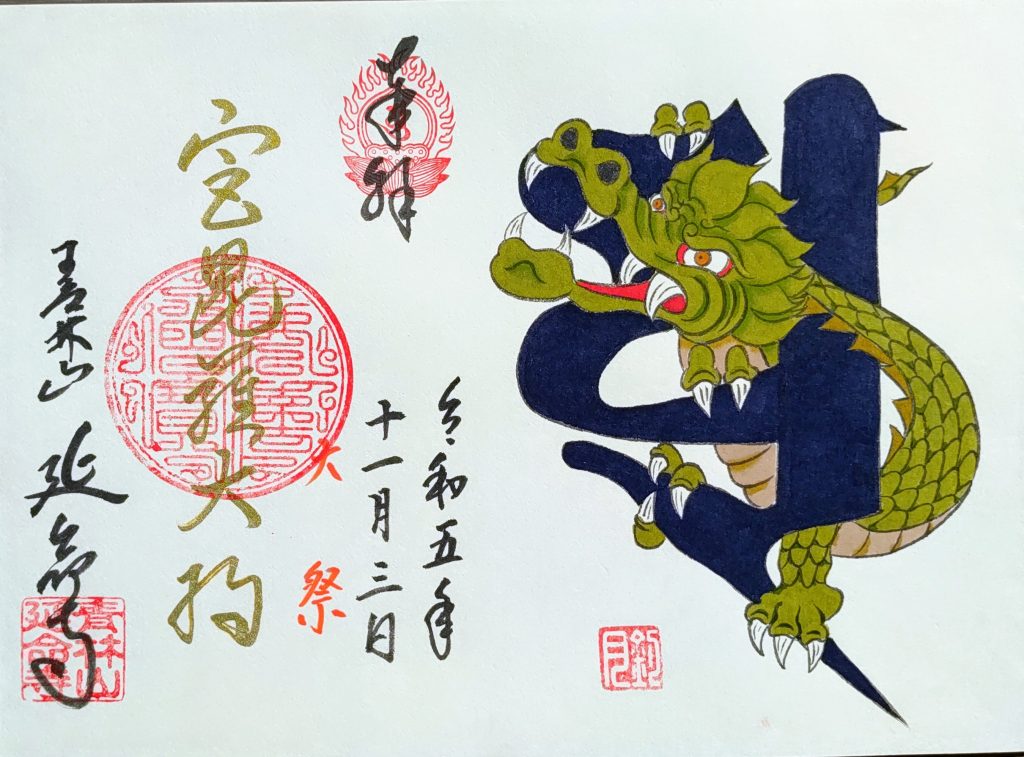 奉拝
令和五年
十一月三日
大祭
宮毘羅大将
青林山 延命寺
青林山
延命寺